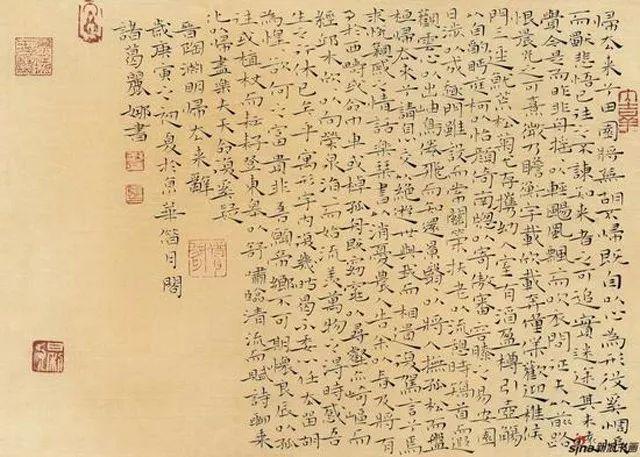 歸去來兮田園將蕪胡不歸既自以心為形役奚惆悵
而獨悲悟已往之不諫知來者之可追實迷途其未遠
覺今是而昨非舟搖以輕颺風飄而吹衣問征夫以前路
恨晨光之熹微乃瞻衡宇載欣載奔僮僕歡迎稚候
門三逕就荒松菊猶存攜幼入室有酒盈樽引壺觴
以自酌眄庭柯以怡顏倚南窗以寄傲審容膝之易安園
日涉以成趣門雖設而常關策扶老以流憩時矯首而遐
觀雲心以出岫鳥倦飛而知還景翳以將入撫孤松而盤
桓歸去來兮請息交以絕游世與我而相遺復駕言兮焉
求悅親戚之情話樂琴書以消憂農人告余以春及將有
事於西疇或命巾車或棹孤舟既窈窕以尋壑亦崎嶇而
經邱木欣以向榮泉涓而始流羨萬物之得時感吾
生之行休已矣乎寓形宇內復幾時曷不委心任去留胡
為惶欲何之富貴非吾願帝鄉不可期懷良辰以孤
往或植杖而耘耔登東皋以舒嘯臨清流而賦詩聊乘
化以歸盡樂夫天命復奚疑
晉陶淵明歸去來辭
歲庚寅之初夏於京華月閣
諸葛麗娜書
sina新浪书画